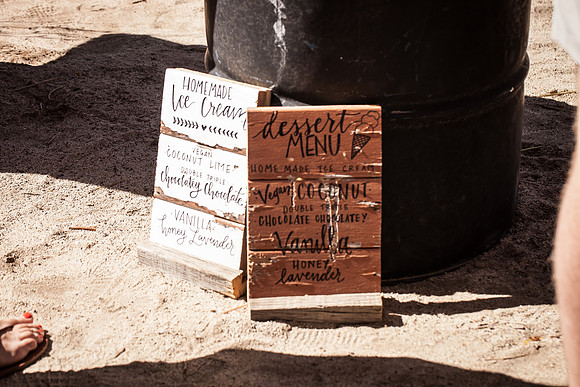 HOMEMADE
Ice Cream
VEGAN
COCONUT LIME
DOUBLE TRIPLE
Chocolatey Chocolate
VANILLA
honey Lavender
dessert
MENU
HOME MADE ICE CREAM
Vegan COCONUT
DOUBLE TRIPLE
CHOCOLATE CHOCOLATEY
Vanilla
HONEY
lavender